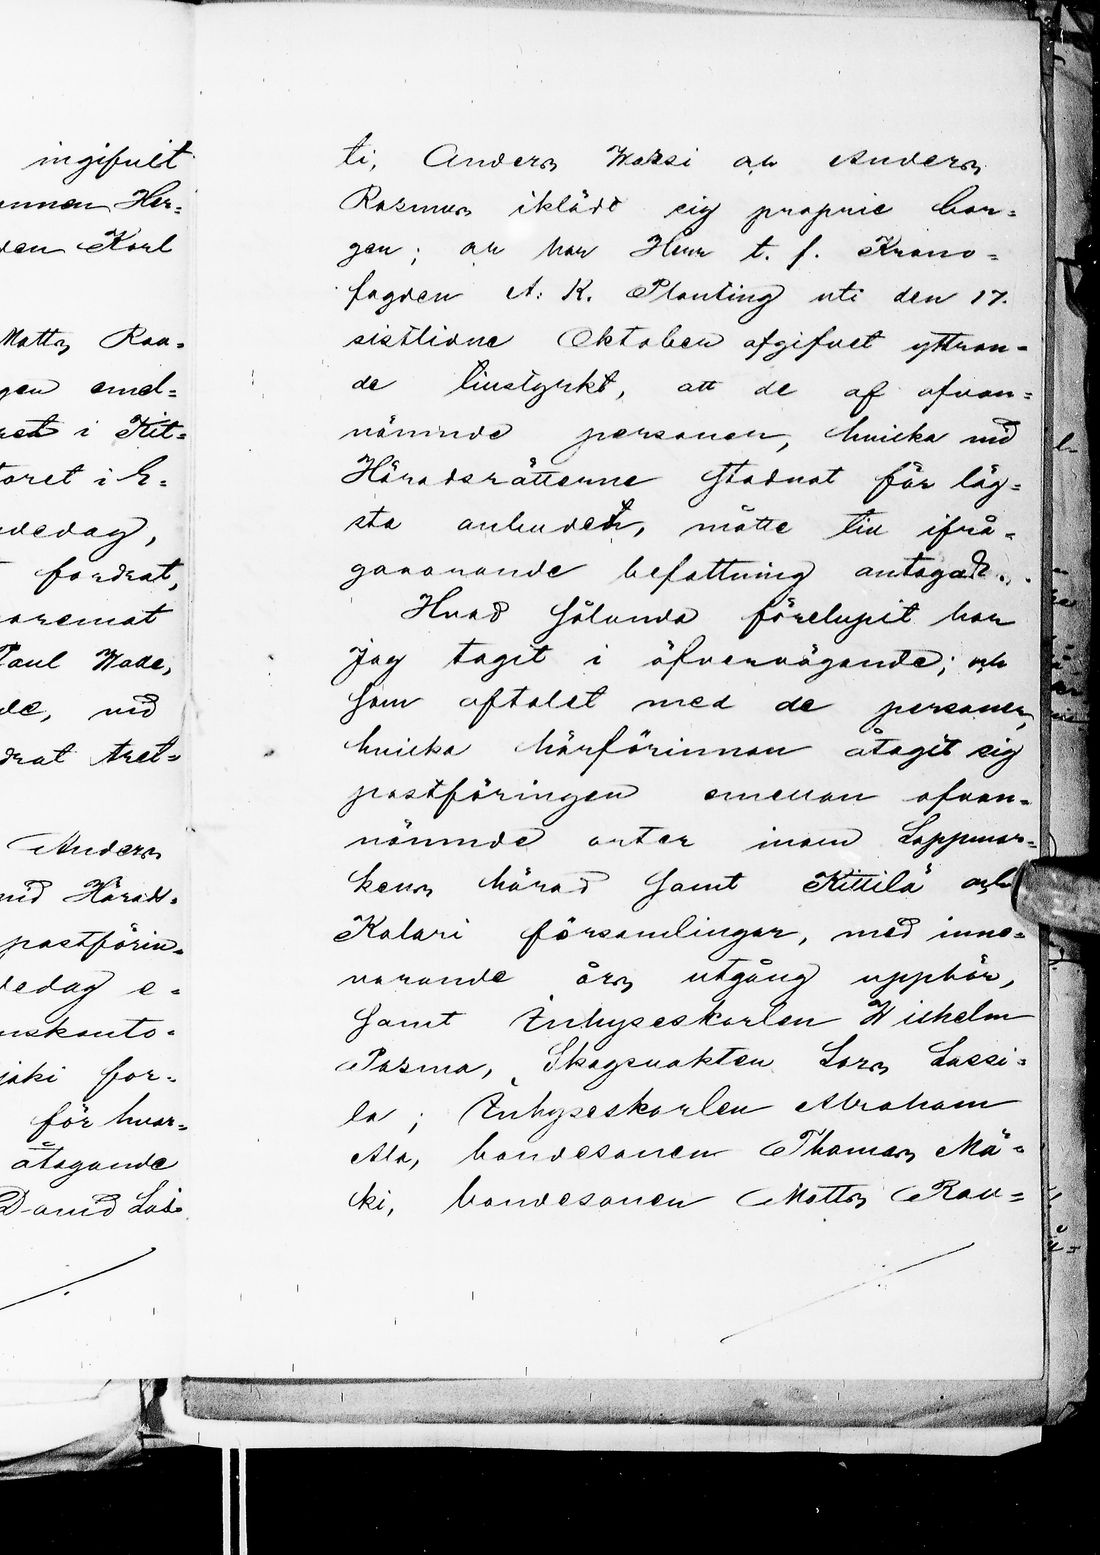 ingifvit
Her=
Karl
Matts Rau=
gen emel=
i Kit=
toret i E=
fordrat,
Paul Wade,
vid
drat tret=
Anders
vid Härads=
postförin=
e=
nskonto=
jäki for=
för hvar=
åtagande
David Las=
ti, Anders Wassi och Anders
Rasmus iklädt sig proprie bor=
gen; och har Herr t. f. Krono=
fogden A. K. Planting uti den 17.
sistlidne Oktober afgifvet yttran=
de tillstyrkt, att de af ofvan=
nämnde personer, hvilka vid
Häradsrätterne stadnat för läg=
sta anbudet, måtte till ifrå=
gavarande befattning antagas.
Hvad sålunda förelupit har
jag tagit i öfvervägande; och
som aftalet med de personer,
hvilka härförinnan åtagit sig
postföringen emellan ofvan=
nämnde orter inom Lappmar=
kens härad samt Kittilä och
Kolari församlingar, med inne=
varande års utgång upphör,
samt Inhyseskarlen Wilhelm
Pasma, Skogsvakten Lars Lassi=
la; Inhyseskarlen Abraham
Ala, bondesonen Thomas Mä=
ki, bondesonen Matts Rau=